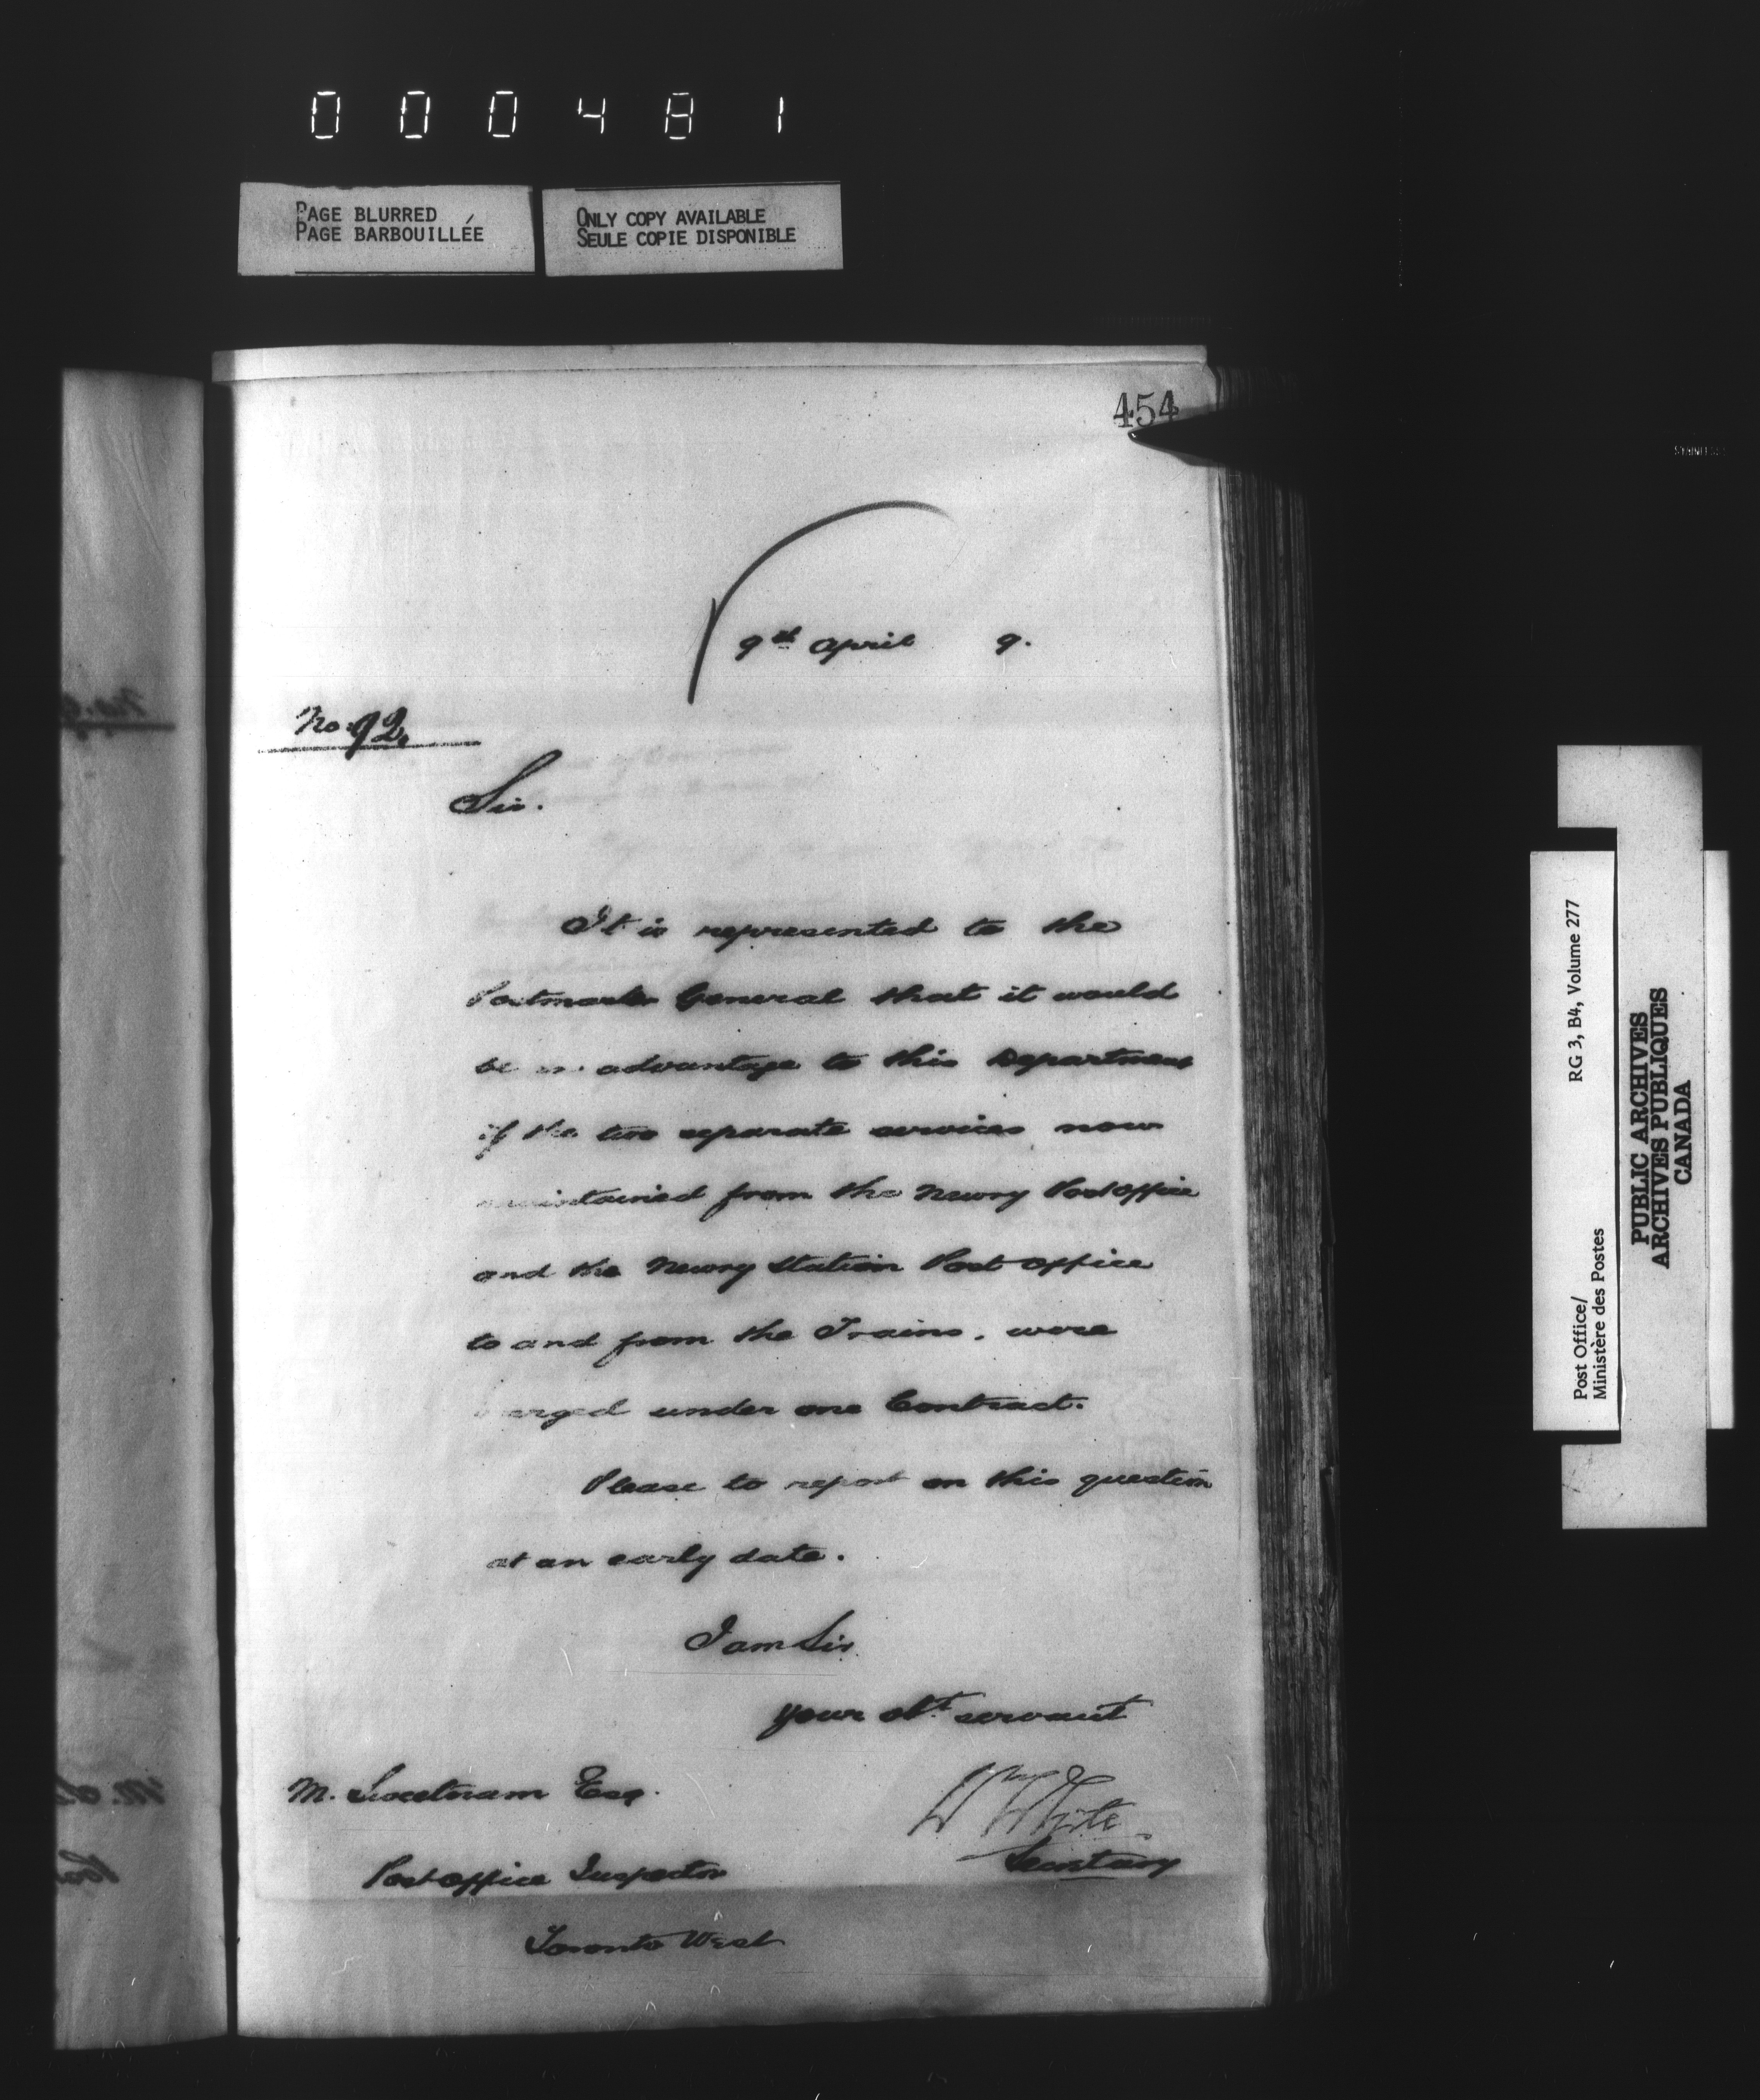 000481
PAGE BLURRED
PAGE BARBOUILLÉE
ONLY COPY AVAILABLE
SEULE COPIE DISPONIBLE
454
9th April 9.
No. 92.
Sir.
It is represented to the
Postmaster General that it would
be an advantage to this Department
if the two separate services now
maintained from the Newry Post Office
and the Newry Station Post Office
to and from the Trains, were
merged under one Contract.
Please to report on this question
at an early date.
I am Sir
your obt. servant
Wm White
Secretary
M. Sweetnam Esq.
Post Office Inspector
Toronto West
RG 3, B4, Volume 277
Post Office/
Ministère des Postes
PUBLIC ARCHIVES
ARCHIVES PUBLIQUES
CANADA